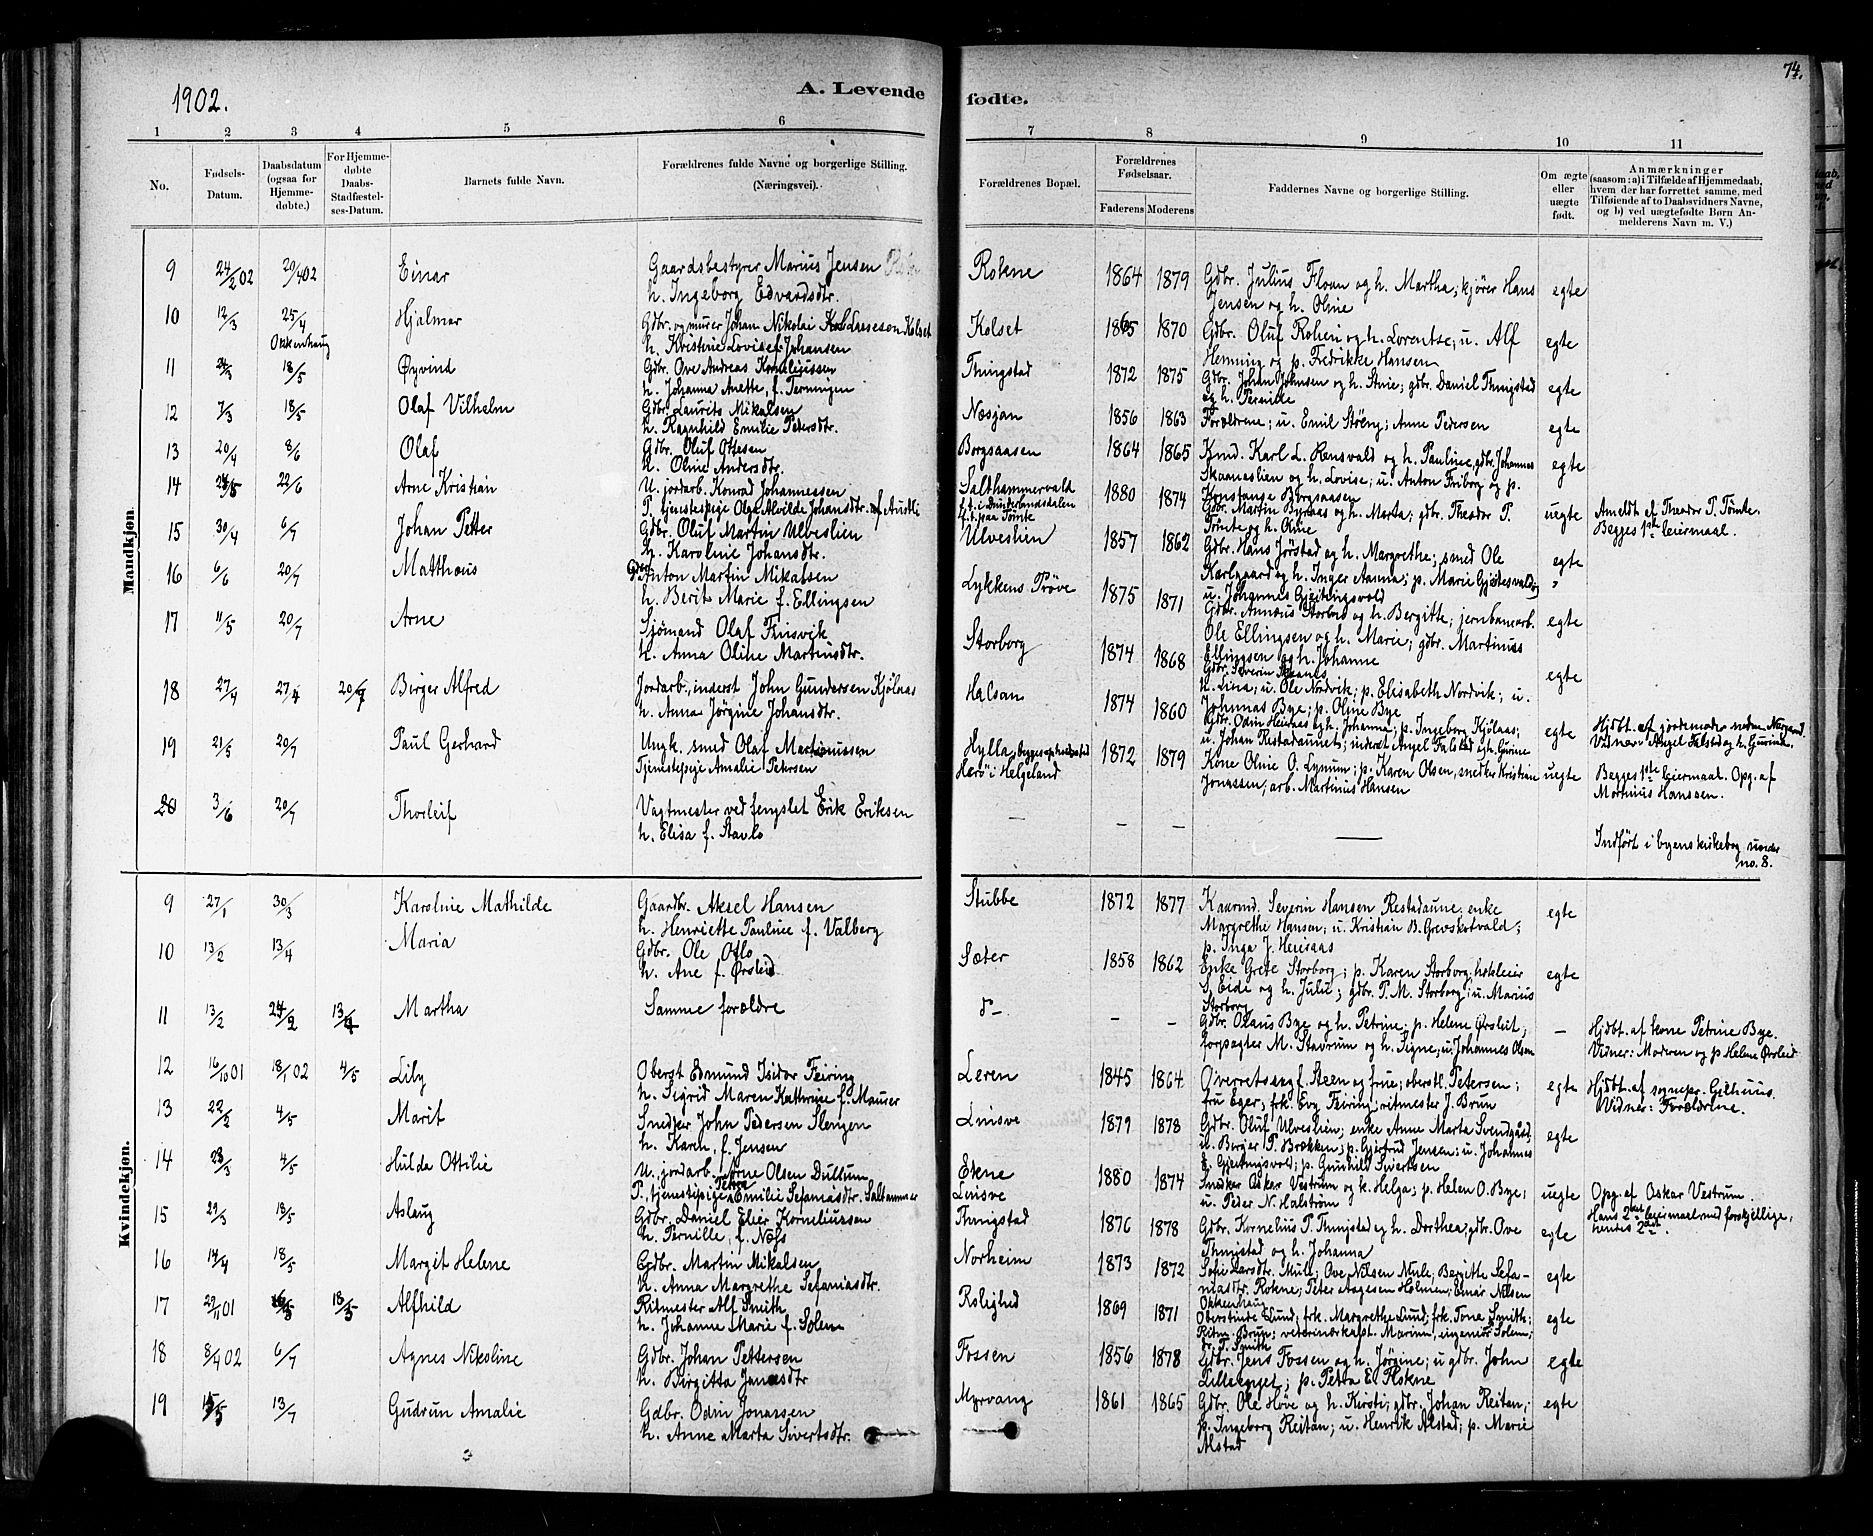 74.
1902.
A. Levende fødte.
1 2 3 4 5 6 7 8 9 10 11
No.
Fødsels-
Datum.
Daabsdatum
(ogsaa for
Hjemme-
døbte.)
For Hjemme-
døbte
Daabs-
Stadfæstel-
ses-Datum.
Barnets fulde Navn.
Forældrenes fulde Navne og borgerlige Stilling.
(Næringsvei).
Forældrenes Bopæl.
Forældrenes
Fødselsaar.
Faderens Moderens
Faddernes Navne og borgerlige Stilling.
Om ægte
eller
uægte
født.
Anmærkninger
(saasom: a) i Tilfælde af Hjemmedaab,
hvem der har forrettet samme, med
Tilføiende af to Daabsvidners Navne,
og b) ved uægtefødte Børn An-
melderens Navn m. V.)
Mandkjøn.
9 24/2 02 20/4 02 Einar Gaardsbestyrer Marius Jensen Rokne 1864 1879 Gdbr. Julius Floan og h. Martha; kjører Hans egte
h. Ingeborg Edvardsdtr. Jensen og h. Oline
10 12/3 25/4 Hjalmar Gdbr. og murer Johan Nikolai Lassesson Kolset Kolset 1865 1870 Gdbr. Oluf Rohein og h. Lorentse; u. Alf egte
Okkenhaug h. Kristine Lovise f. Johansen Henning og p. Fredrikke Hansen
11 24/3 18/5 Øyvind Gdbr. Ove Andreas Korneliussen Thingstad 1872 1875 Gdbr. Johan Johnsen og h. Stine; gdbr. Daniel Thingstad egte
h. Johanna Anette, f. Ternningen og h. Pernille
12 7/3 18/5 Olaf Vilhelm Gdbr. Laurits Mikalsen Næsjan 1856 1863 Forældrene; u. Emil Støeng; Anne Pedersen egte
h. Ragnhild Emilie Petersdtr.
13 20/4 8/6 Olaf Gdbr. Oluf Ottesen Borgsaasen 1864 1865 Kmd. Karl L. Rensvald og h. Pauline, gdbr. Johannes egte
h. Oline Andersdtr. Skaaneslien og h. Lovise; u. Anton Friborg og p.
Konstanse Borgsaasen
14 22/6 Arne Kristian U. jordarb. Konrad Johannessen Salthammervald 1880 1874 Gdbr. Martin Byraas og h. Marta; gdbr. Theodor P. uegte Anmeldt af Theodor P. Tømte.
P. tjenestepige Olga Alvilde Johansdtr. f. t. i Dunderlandsdalen f. t. paa Tømte Tømte og h. Oline Begges 1ste leiermaal.
15 30/4 6/7 Johan Petter Gdbr. Oluf Martin Ulveslien Ulveslien 1857 1862 Gdbr. Hans Jørstad og h. Margrethe; smed Ole egte
h. Karoline Johansdtr. Karlgaard og h. Inger Aanna; p. Marie Gjetesvald;
u. Johannes Gjeitingsvold
16 6/6 20/7 Matthæus Gdbr. Anton Martin Mikalsen Lykkens Prøve 1875 1871 Gdbr. Annæus Storborg og h. Bergitte; jernbanearb. "
h. Berit Marie f. Ellingsen Ole Ellingsen og h. Marie; gdbr. Martinus egte
Ellingsen og h. Johanne
17 11/5 20/7 Arne Sjømand Olaf Finsvik Storborg 1874 1868 Gdbr. Severin Skanes egte
h. Anna Oline Martinusdtr. h. Lina; u. Ole Nordvik; p. Elisabeth Nordvik; u.
Johannas Bye; p. Oline Bye
18 27/4 27/4 20/7 Birger Alfred Jordarb., inderst John Gundersen Kjølaas Halsan 1874 1860 Gdbr. Odin Heiraas og h. Johanna; p. Ingeborg Kjølaas; egte Hjdbt. af jordemoder
h. Anna Jørgine Johansdtr. u. Johan Restadaunet; inderst Angel Falstad og h. Gurine Vidner: Angel Falstad og h. Gurine.
19 21/5 20/7 Paul Gerhard Ungk. smed Olaf Martinussen Hylla, 1872 1879 Kone Oline O. Lynum; p. Karen Olsen, snedker Kristian uegte Begges 1ste leiermaal. Opg. af
Tjenestepige Amalie Petersen Herø i Helgeland Jonassen; arb. Martinus Hansen Martinius Hanssen.
20 3/6 20/7 Thorleif Vagtmester ved fengslet Erik Eriksen – – – —
h. Elisa f. Stavlo Indført i byens kirkebog under
no. 8.
Kvindekjøn.
9 27/1 30/3 Karoline Mathilde Gaardbr. Aksel Hansen Stubbe 1872 1877 Kaarmd. Severin Hansen Restadaune; enke egte
h. Henriette Pauline f. Valberg Margrethe Hansen; u. Kristian B. Grevskotvald;
p. Inga J. Heiraas
10 13/2 13/4 Maria Gdbr. Ole Otlo Sæter 1858 1862 Enke Grete Storborg; p. Karen Storborg; hoteleier egte
h. Ane f. Ørsleid S. Eide og h. Julie; gdbr. P. M. Storborg; u. Marius
Storborg
11 13/2 24/2 13/4 Martha Samme forældre do – – Gdbr. Olaus Bye og h. Petrine; p. Helene Ørsleit; – Hjdbt. af kone Petrine Bye.
forpagter M. Stavrum og h. Signe; u. Johannes Olsen Vidner: Moderen og p Helene Ørsleid
12 16/10 01 18/1 02 4/5 Liby Oberst Edmund Isidor Feiring Leren 1845 1864 Overretssagf. Steen og frue; oberstl. Petersen; egte Hjdbt. af sognepr. Gilhuus.
h. Sigrid Maren Kathrine f. Mauser fru Eger; frk. Evy Feiring; ritmester J. Brun Vidner: Forældrene.
13 22/2 4/5 Marit Snedker John Pedersen Slengen Linsve 1879 1878 Gdbr. Oluf Ulveslien; enke Anne Marta Svendgård; egte
h. Karen, f. Jensen u. Berger P. Brækken; p. Gjertrud Jensen; u. Johannes
E. Gjetingsvold; p. Gunhild Sivertsen
14 23/3 4/5 Hulda Ottilie U. jordarb. Arne Olsen Dullum Ekne 1880 1874 Snedker Oskar Vestrum og k. Helga; p. Helen O. Bye; uegte Opg. af Oskar Vestrum.
P., tjenestepige Petra Emilie Sefaniasdtr. Saltammer Linsve u. Peder N. Halstrøm Hans 2det leiermaal med forskjellige,
hendes 2det.
15 29/3 18/5 Aslaug Gdbr. Daniel Elier Korneliussen Thingstad 1876 1878 Gdbr. Kornelius P. Thingstad og h. Dorthea, gdbr. Ove egte
h. Pernille, f. Næss Thingstad og h. Johanna
16 14/4 18/5 Margit Helene Gdbr. Martin Mikalsen Norheim 1873 1872 Sofie Larsdtr. Mule; Ove Nilsen Mule; Bergitte Sefa- egte
h. Anna Margrethe Sefaniasdtr. niasdtr. Rokne; Peter Aagesen Holmen; Einar Nilsen
Okkenhaug
17 29/11 01 18/5 Alfhild Ritmester Alf Smith Rolighed 1869 1871 Oberstinde Lund; frk. Margrethe Lund; frk. Tone Smith; egte
h. Johanne Marie f. Solem Ritm. Brun; veterinærkapt. Marum, ingeniør Solem;
dr. T. Smith
18 8/4 02 6/7 Agnes Nikoline Gdbr. Johan Pettersen Fossen 1856 1878 Gdbr. Jens Fossen og h. Jørgine; u gdbr. John egte
h. Birgitta Jonasdtr ; p. Petra E. Rokne
19 15/5 13/7 Gudrun Amalie Gdbr. Odin Jonassen Myrvang 1861 1865 Gdbr. Ole Høve og h. Kirsti; gdbr. Johan Reitan; egte
h. Anne Marta Sivertsdtr. p. Ingeborg Reitan; u. Henrik Alstad; p. Marie
Alstad